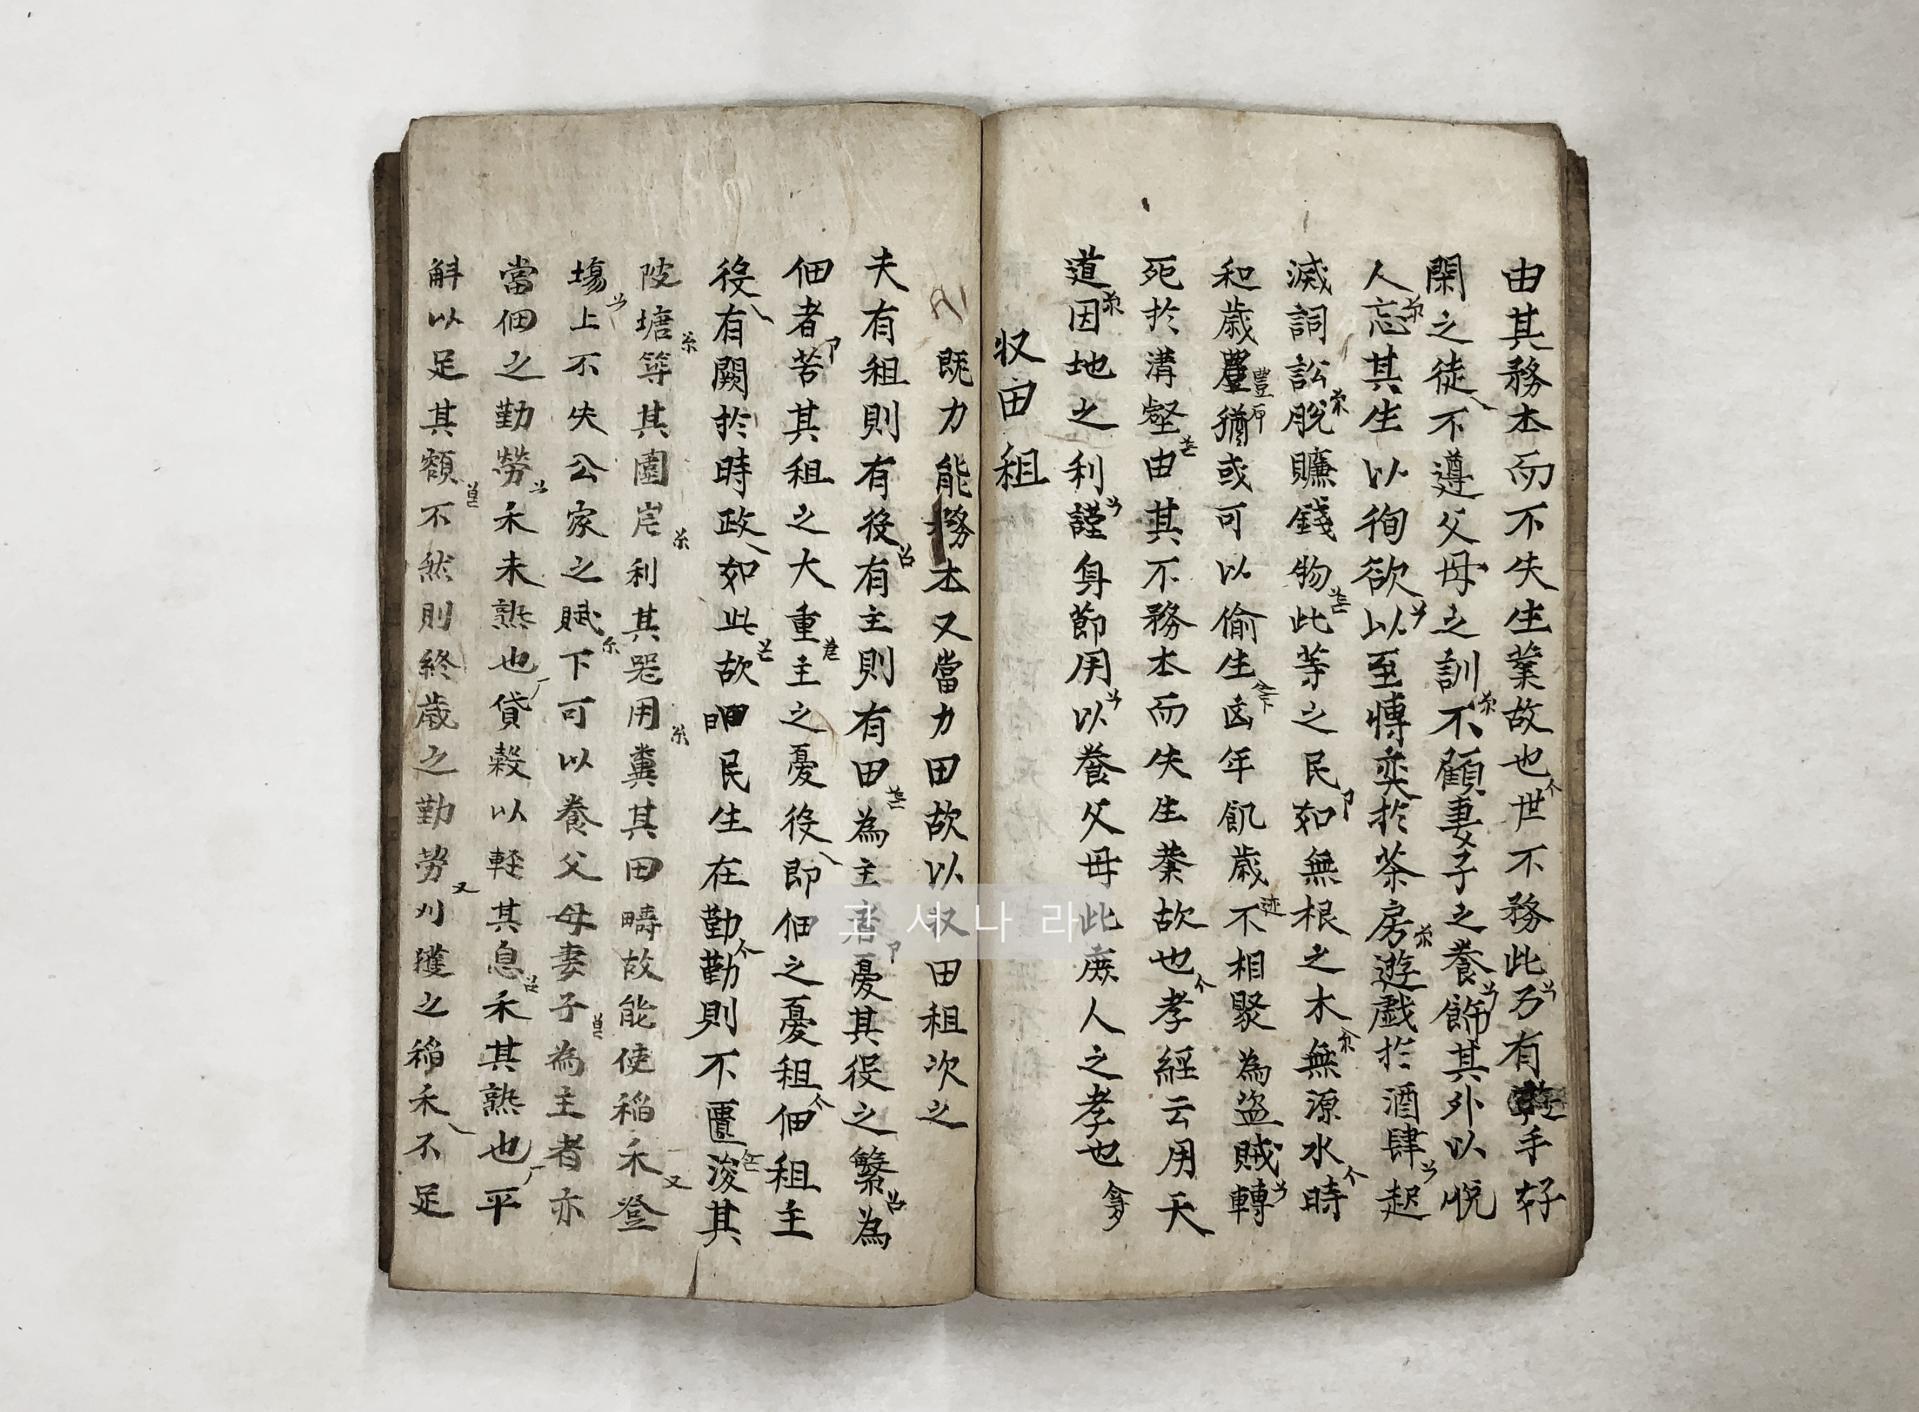 由其務本而不失生業故也世不務此乃有手好
閑之徒不遵父母之訓不顧妻子之養飾其外以悅
人忘其生以徇欲以至博奕於茶房遊戱於酒肆起
滅詞訟脫賺錢物此等之民如無根之木無源水時
和歲豊猶或可以偷生凶年飢歲不相聚為盜賊轉
死於溝壑由其不務本而失生業故也孝經云用天
道因地之利謹身節用以養父母此庻人之孝也
収田租
既力能務本又當力田故以収田租次之
夫有租則有役有主則有田為主者憂其役之繁為
佃者苦其租之大重主之憂役即佃之憂租佃租主
役有闕於時政如此故民生在勤勤則不匱浚其
陂塘等其園岸利其器用糞其田疇故能使稲禾登
塲上不失公家之賦下可以養父母妻子為主者亦
當佃之勤勞禾未熟也貸穀以輕其息禾其熟也平
斛以足其額不然則終歲之勤勞刈獲之稲禾不足
고서나라